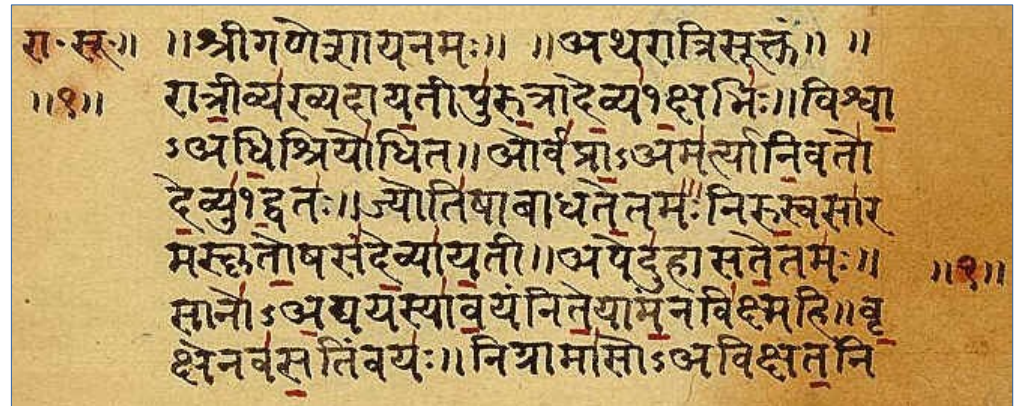 रा॰ सू॰॥ ॥श्रीगणेशायनमः॥ ॥अथरात्रिसूक्तं॥ ॥
॥१॥ रात्री॒व्य॑ख्यदाय॒तीपु॑रु॒त्रादे॒व्य१॒॑क्षभिः॑॥विश्वा॒
ऽअधि॒श्रियो॑धित॥ओर्व॑प्रा॒ऽअम॑र्त्यानि॒वतो॑
दे॒व्यु१॒॑द्वतः॑॥ज्योति॑षाबाधते॒तमः॑निरु॒स्वसा॑र
मस्कृतो॒षसं॑दे॒व्या॑य॒ती॥अपेदु॑हासते॒तमः॑॥ ॥१॥
सानो॑ऽअ॒द्ययस्या॑व॒यंनिते॒याम॒न्नवि॑क्ष्महि॥वृ॒
क्षेनव॑स॒तिंवयः॑॥निग्रामा॑सोऽअविक्षत॒नि